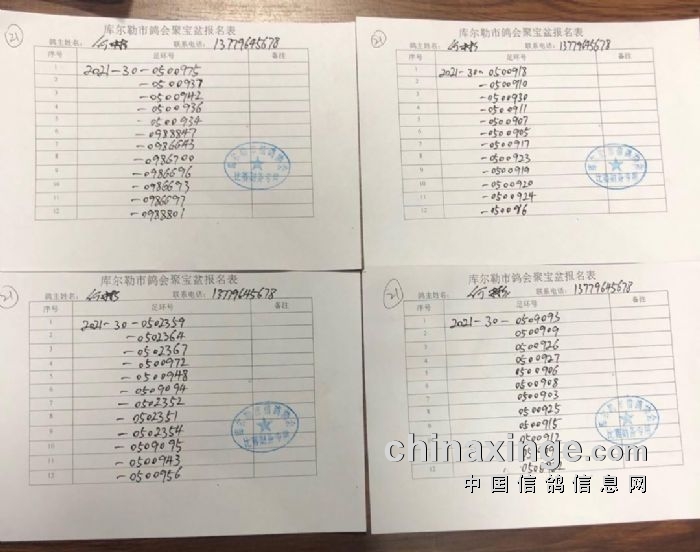 21
库尔勒市鸽会聚宝盆报名表
鸽主姓名： 联系电话：13779645678
序号 足环号 备注
1 2021-30-0500975
2 -0500937
3 -0500942
4 -0500936
5 -0500934
6 -0988847
7 -0986643
8 -0986700
9 -0986696
10 -0986693
11 -0986697
12 -0988801
21
库尔勒市鸽会聚宝盆报名表
鸽主姓名： 联系电话：13779645678
序号 足环号 备注
1 2021-30-0500918
2 -0500910
3 -0500930
4 -0500911
5 -0500907
6 -0500905
7 -0500917
8 -0500923
9 -0500919
10 -0500920
11 -0500924
12
21
库尔勒市鸽会聚宝盆报名表
鸽主姓名： 联系电话：13779645678
序号 足环号 备注
1 2021-30-0502359
2 -0502364
3 -0502367
4 -0500972
5 -0500948
6 -0509094
7 -0502352
8 -0502351
9 -0502354
10 -0509095
11 -0500943
12 -0500956
21
库尔勒市鸽会聚宝盆报名表
鸽主姓名： 联系电话：13779645678
序号 足环号 备注
1 2021-30-0509093
2 0500909
3 0500926
4 0500927
5 0500906
6 0500908
7 0500903
8 0500925
9 0500915
10 0500912
12
chinaxinge.com
中国信鸽信息网